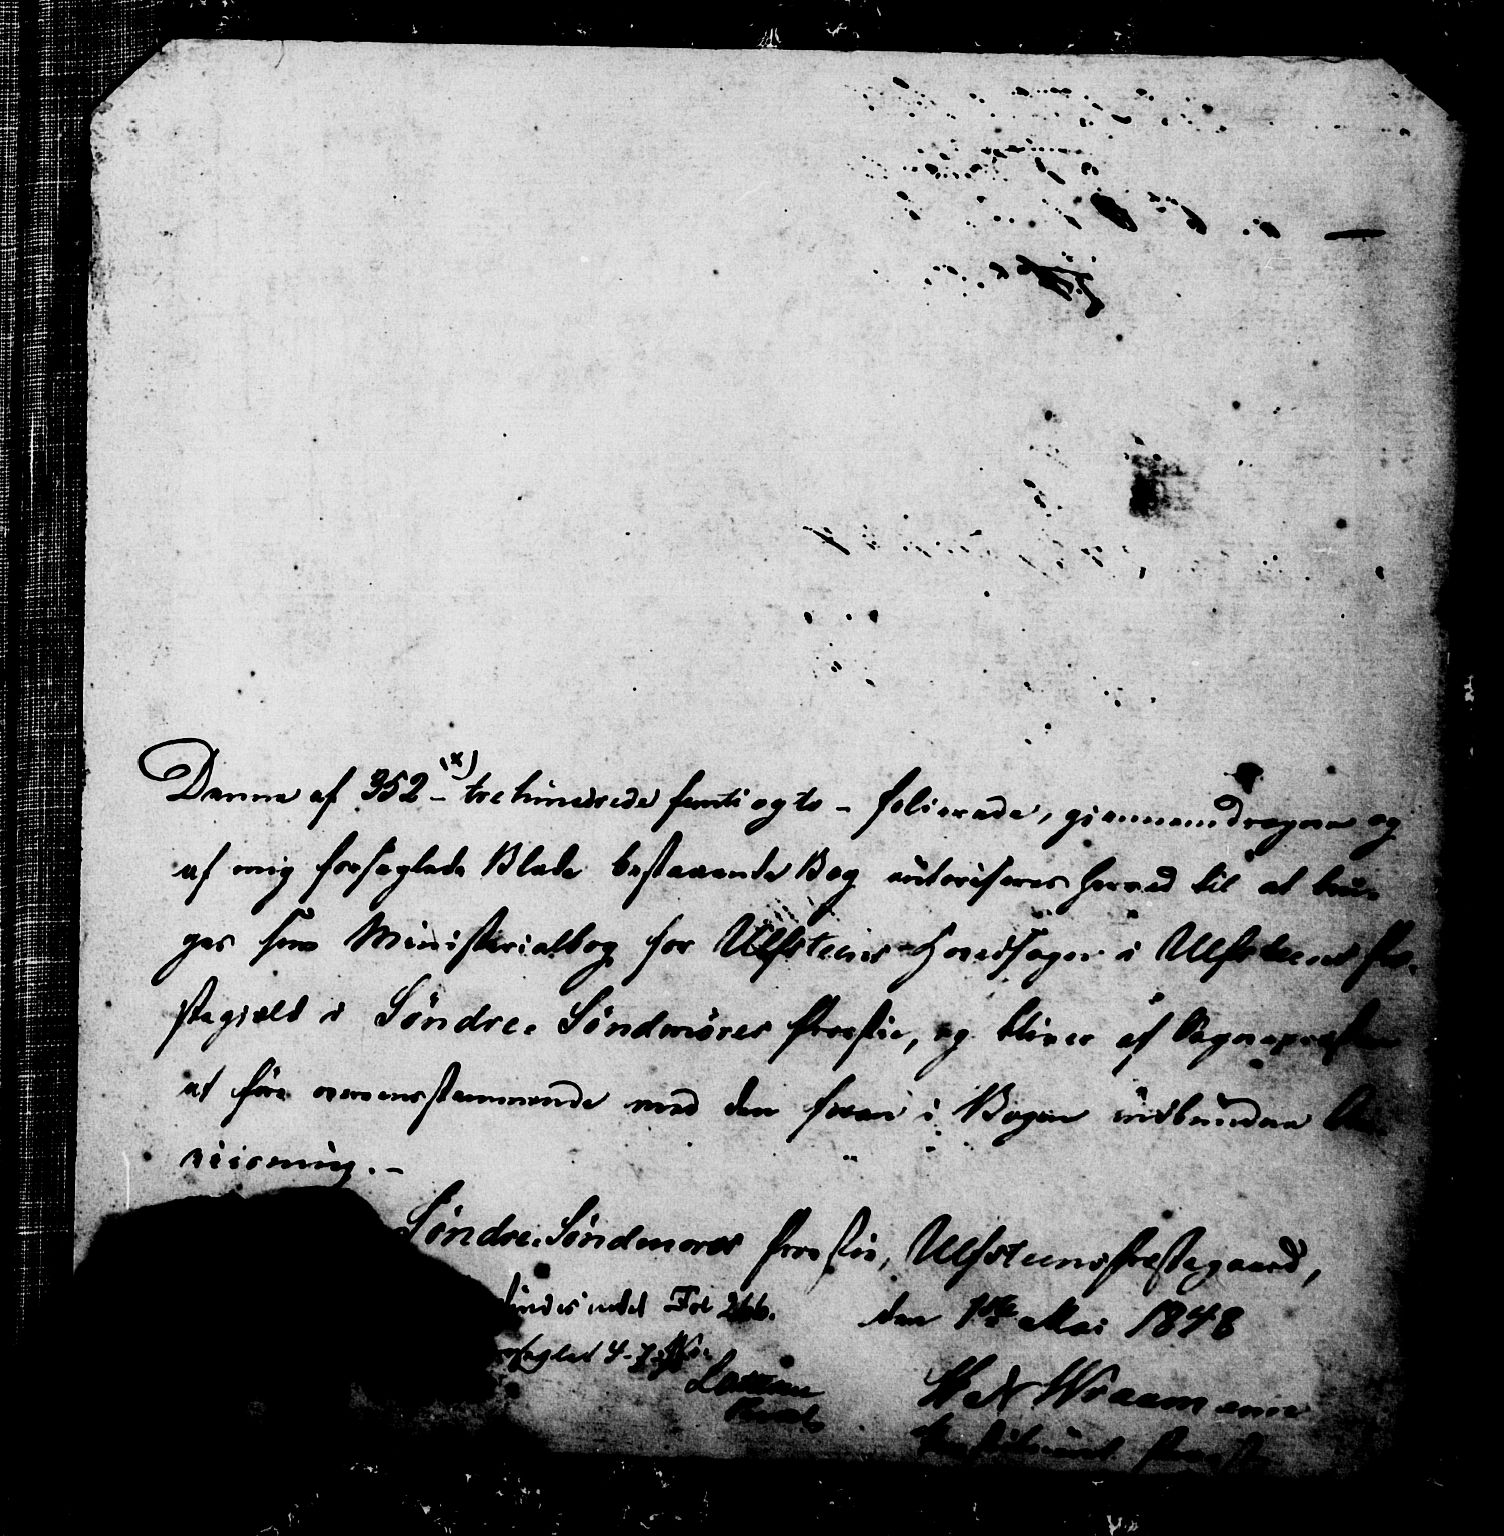 Denne af 352 (x) – trehundrede femti og to – folierede, gjennemdragne og
af mig forseglede Blade bestaaende Bog autoriseres herved til at bru-
ges som Ministerialbog for Ulfsteens Hovedsogn i Ulfsteens Præ-
stegjeld i Søndre-Søndmøres Prosti, og bliver af Sognepræsten
at føre overensstemmende med den foran i Bogen indbundne An-
viisning. –
Søndre-Søndmøres Prosti, Ulfsteens Præstegaard,
indtil Fol 266. den 1ste Mai 1848
forseglet 4-7